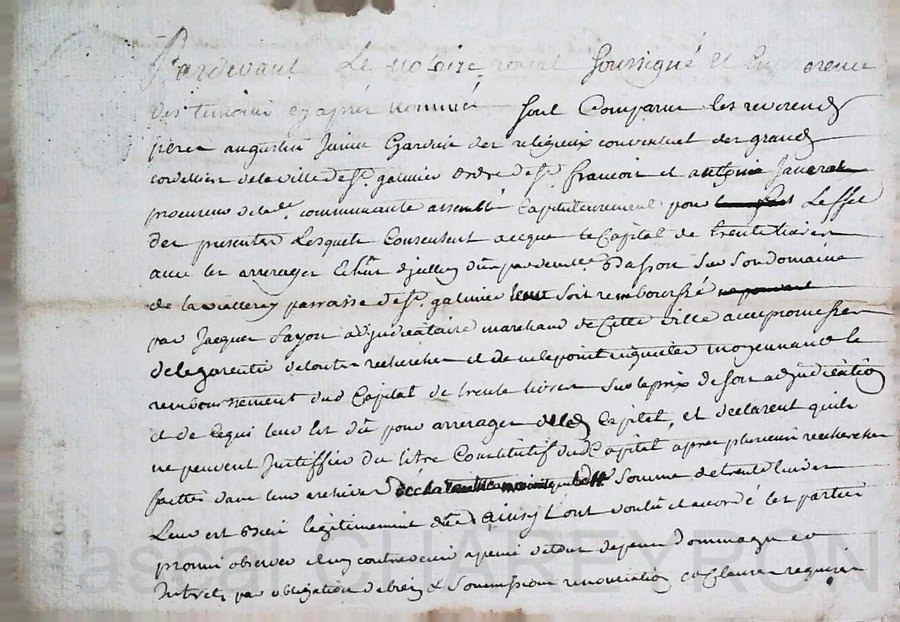 Pardevant Le notoire royal soussigné et En presence
des temoins cy après nommés sont Comparus les reverends
peres augustin Janin Gardien des religieux conventuel des grands
cordellier de la ville de St. galmier ordre de St. francois et
procureur de lad. communauté assemblé Capitulairement pour Leffet
des presentes Lesquels Consentent aceque le Capital de trente livres
avec les arrerages Echus dû par Basson Sur Son domaine
de la parroisse de St. galmier soit remboursé
par Jacques adjudicataire marchand de Cette ville avec promesse
de le garentir de toutes recherches et de ne le point inquieter moyennant le
remboursement dud Capital de trente livres Sur le prix de son adjudication
et de ce qui leur Est dû pour arrerages dud Capital, et declarent quils
ne peuvent Justiffier du titre Constitutif dud Capital apres plusieurs recherches
faittes dans leur archives Somme de trente livres
Leur est Bien legitimement dûe ainsy L'ont voulu et accordé les parties
promis observer et ny contrevenir a peine de tous depens Dommages et
Interets par obligation de biens & Soumission renonciation et Clauses requises
Pascal CHAREYRON